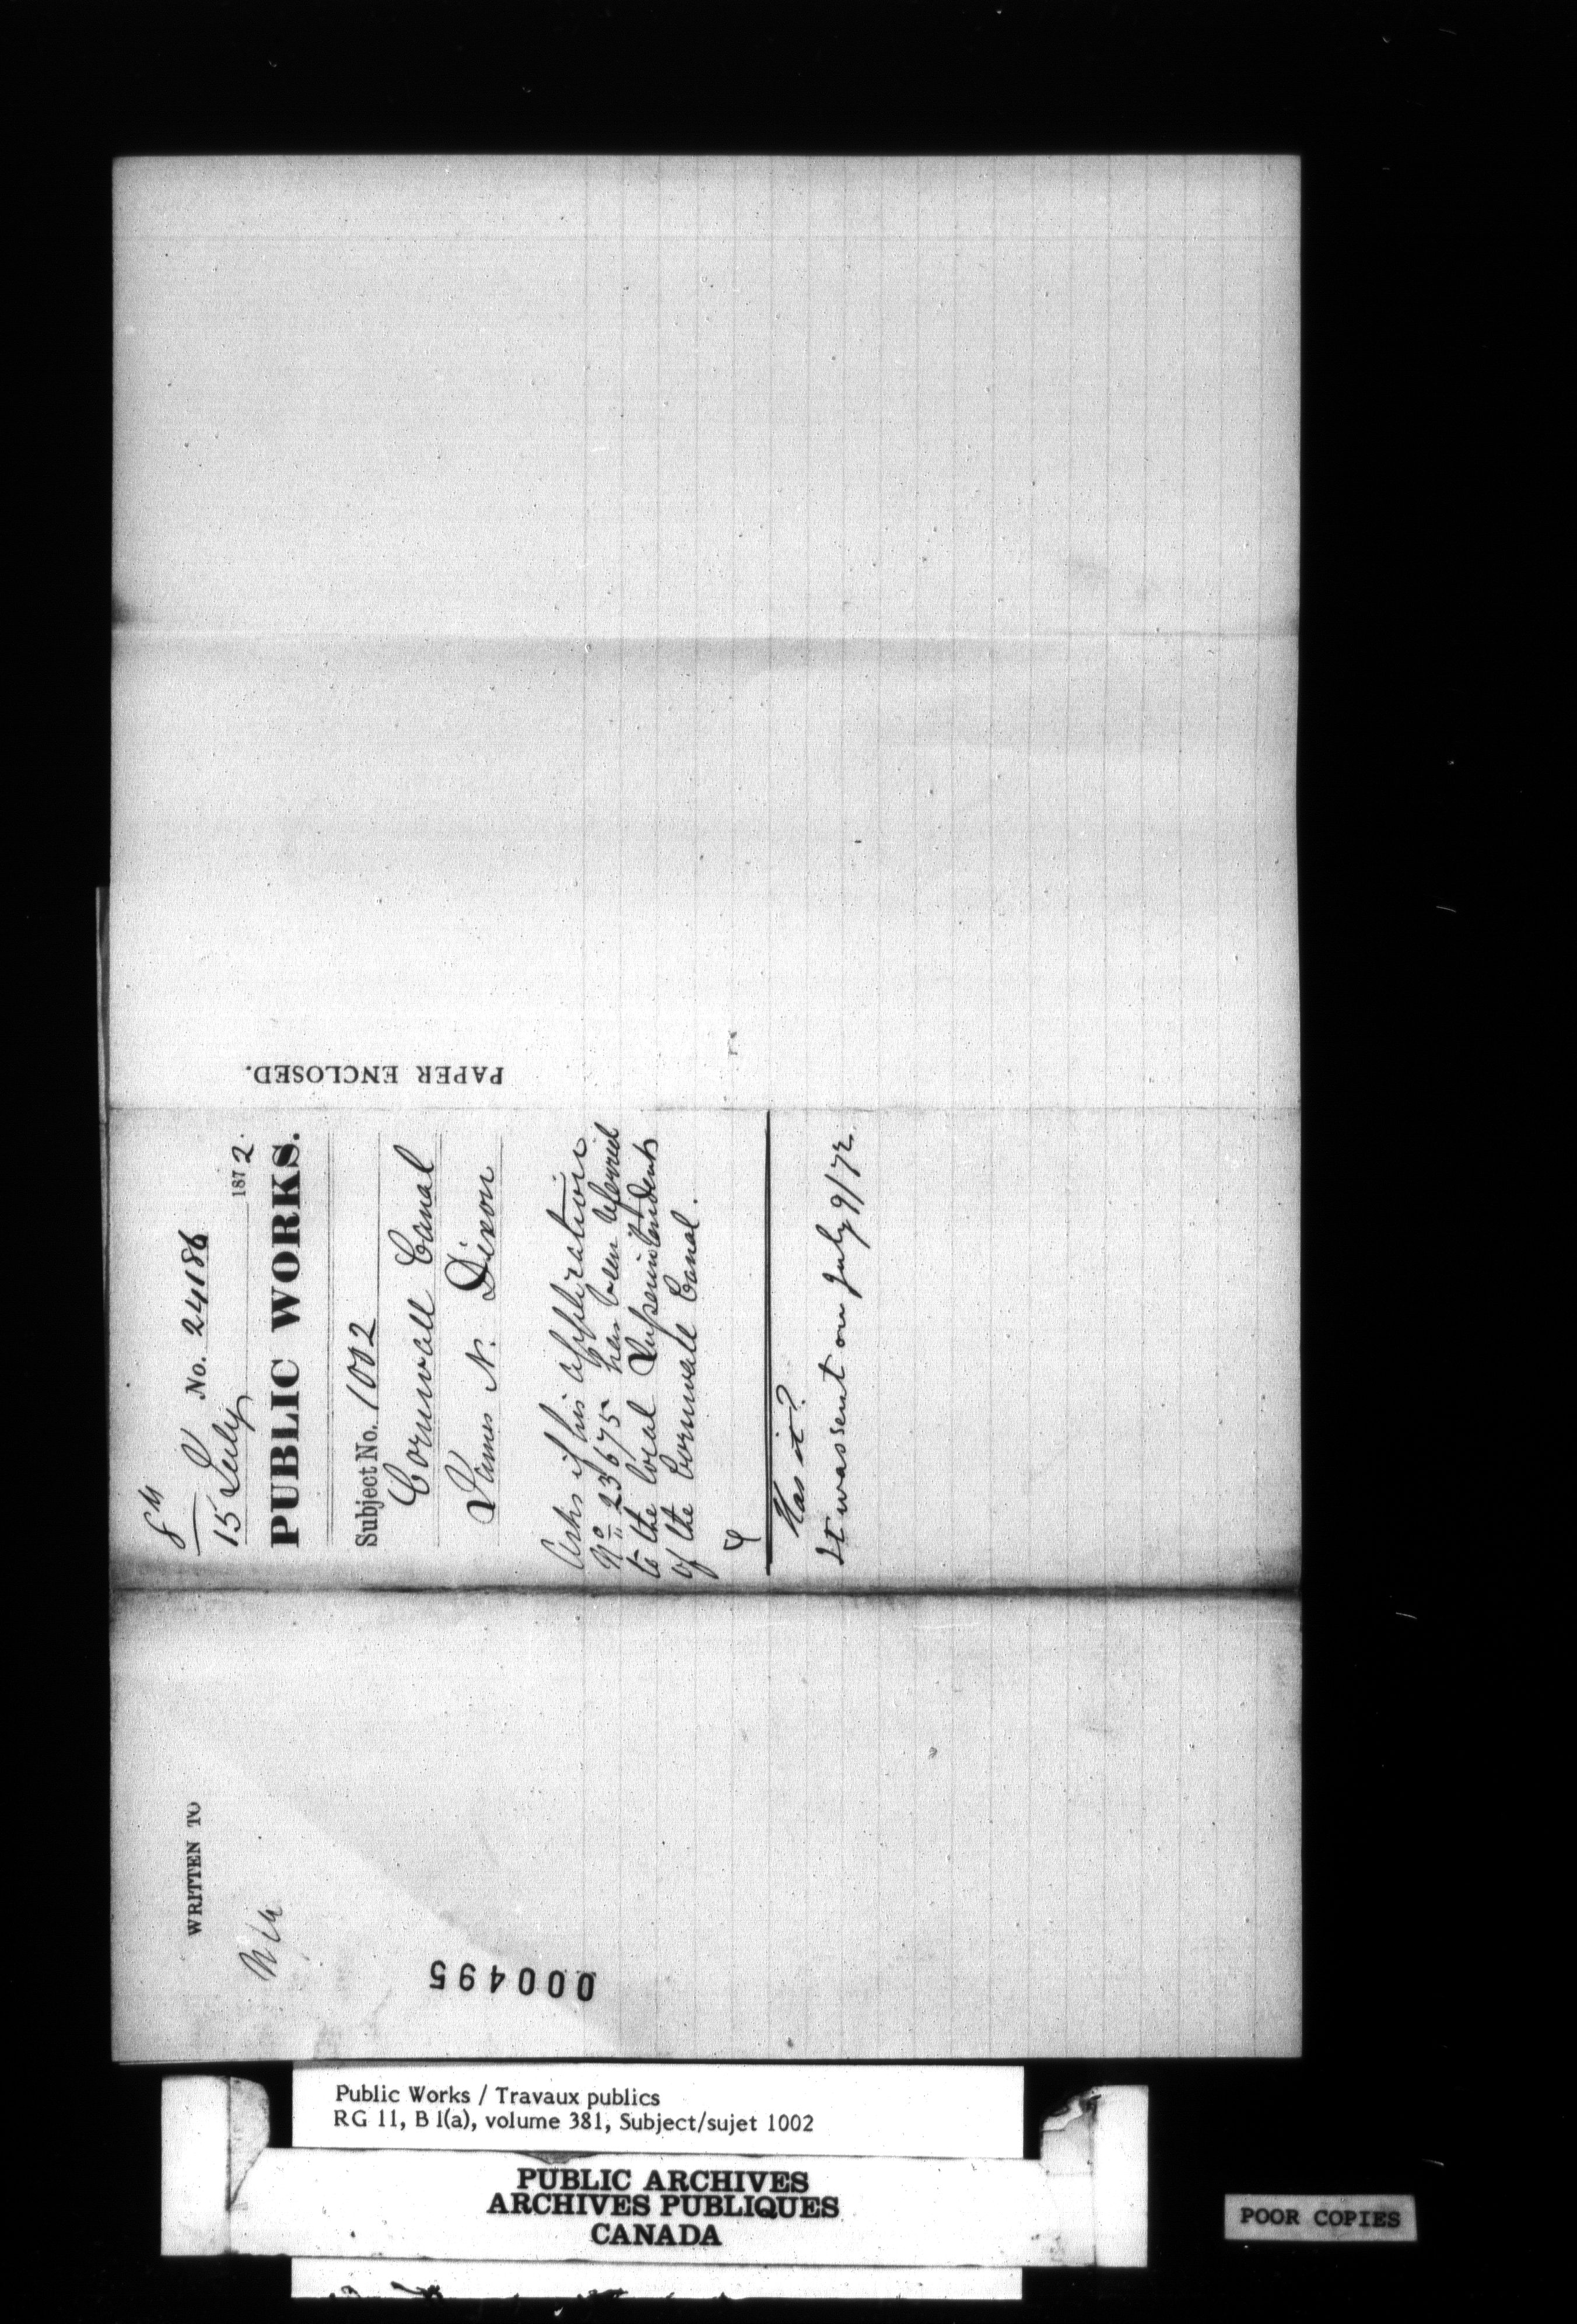 No. 24186
15 July 1872.
PUBLIC WORKS.
Subject No. 1002
Cornwall Canal
James N. Dixon
Asks if his application
No 23675 has been referred
to the local Superintendents
of the Cornwall Canal.
Has it?
It was sent on July 9/72.
PAPER ENCLOSED.
WRITTEN TO
000495
Public Works / Travaux publics
RG 11, B 1(a), volume 381, Subject/sujet 1002
PUBLIC ARCHIVES
ARCHIVES PUBLIQUES
CANADA
POOR COPIES